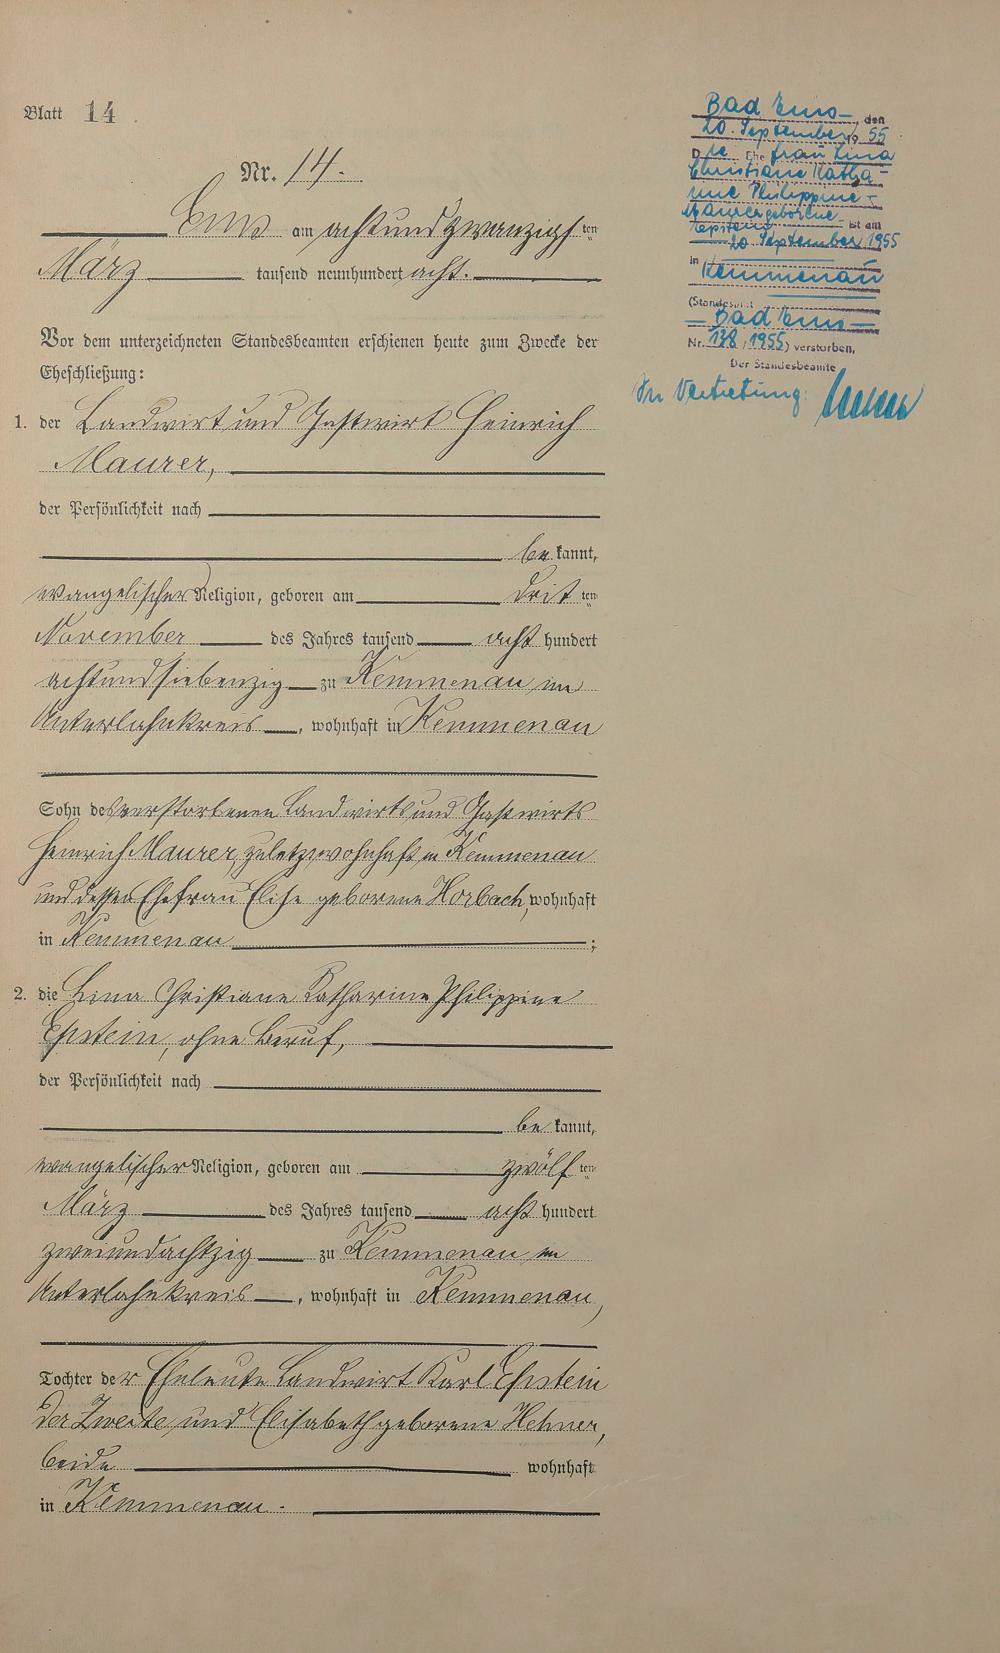 Blatt 14
Nr. 14.
Ems am achtundzwanzigsten
März tausend neunhundert acht.
Vor dem unterzeichneten Standesbeamten erschienen heute zum Zwecke der
Eheschließung:
1. der Landwirt und Gastwirt Heinrich
Maurer,
der Persönlichkeit nach
bekannt,
evangelischer Religion, geboren am dritten
November des Jahres tausend acht hundert
achtundsiebenzig zu Kemmenau im
Unterlahnkreis, wohnhaft in Kemmenau
Sohn des verstorbenen Landwirts und Gastwirts
Heinrich Maurer, zuletzt wohnhaft in Kemmenau
und dessen Ehefrau Elise geborene Horbach, wohnhaft
in Kemmenau;
2. die Lina Christiane Katharine Philippine
Epstein, ohne Beruf,
der Persönlichkeit nach
bekannt,
evangelischer Religion, geboren am zwölften
März des Jahres tausend acht hundert
zweiundachtzig zu Kemmenau im
Unterlahnkreis, wohnhaft in Kemmenau,
Tochter der Eheleute Landwirt Karl Epstein
der Zweite und Elisabeth geborene Hehner,
beide wohnhaft
in Kemmenau.
Bad Ems, den
20. September 1955
Die Ehefrau Lina
Christiane Katha-
rine Philippine
Maurer geborene
Epstein ist am
20. September 1955
in Kemmenau
(Standesamt
Bad Ems
Nr. 138/1955) verstorben.
Der Standesbeamte
In Vertretung: